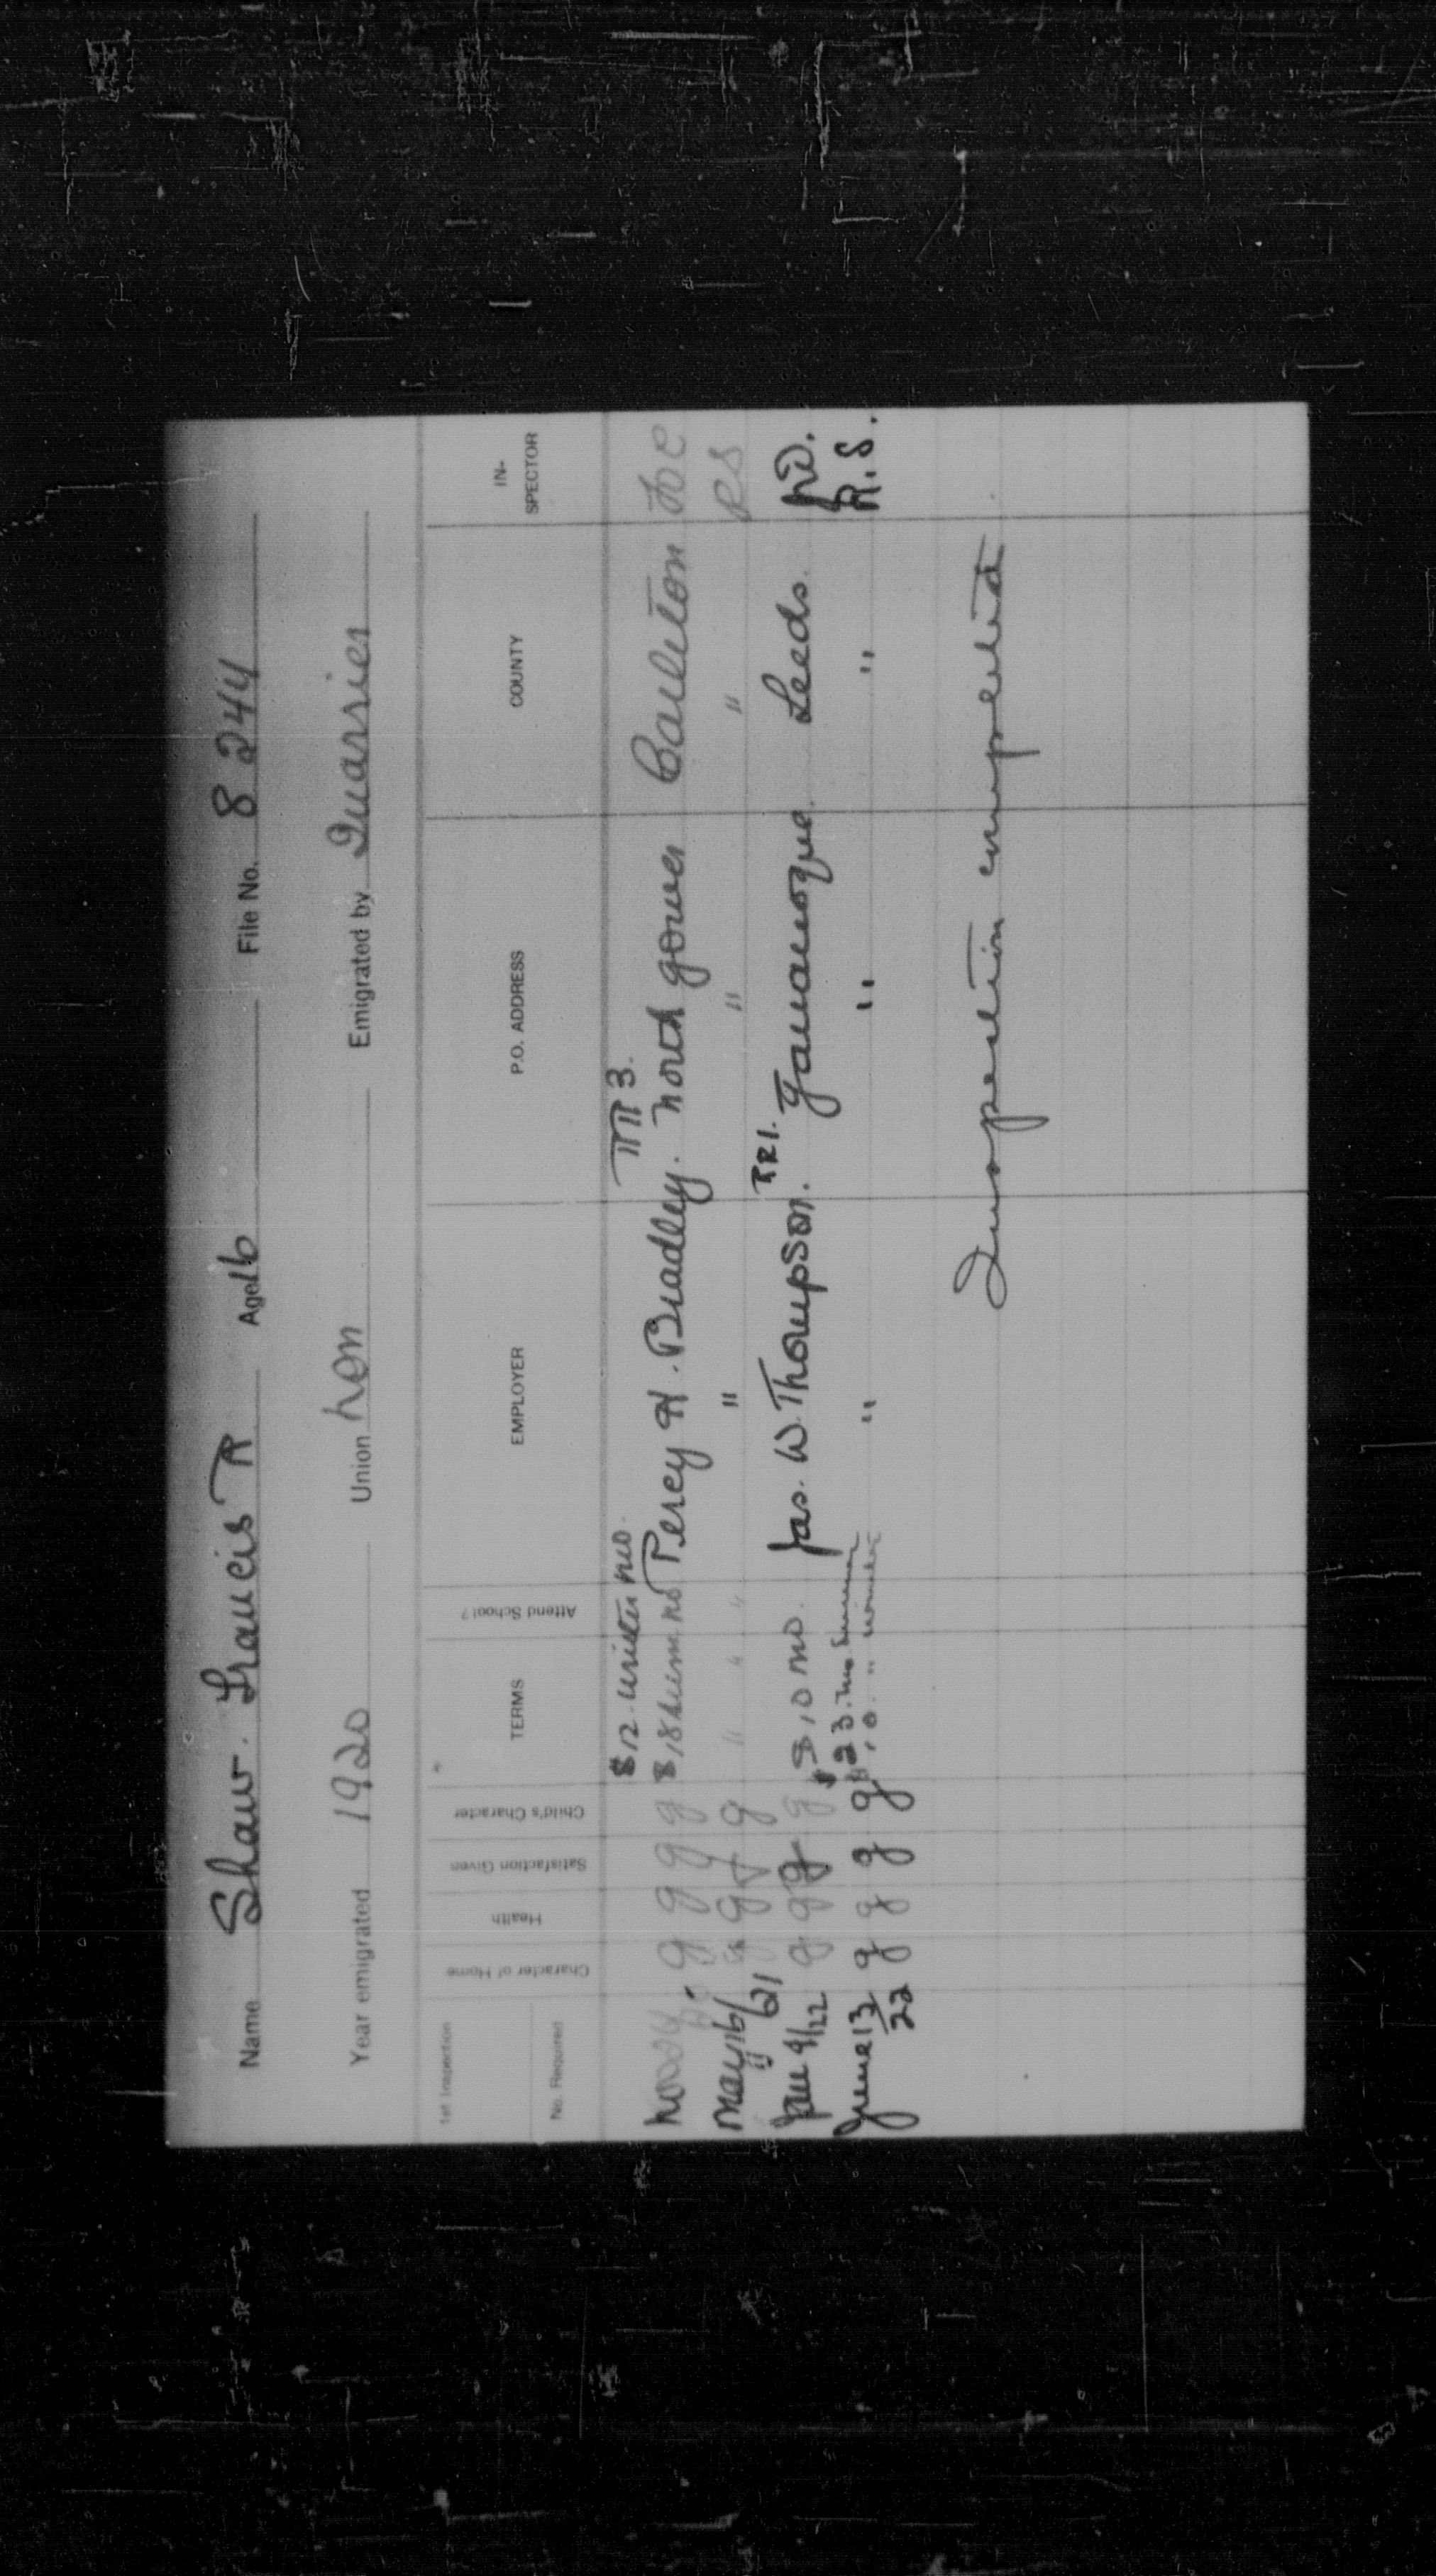 Name Shaw. Francis R Age 16 File No. 8244
Year emigrated 1920 Union Non Emigrated by Quarrier
1st Inspection
No. Required
Character of Home
Health
Satisfaction Given
Child's Character
TERMS
Attend School?
EMPLOYER
P.O. ADDRESS
COUNTY
IN-SPECTOR
$12. winter mo. RR 3.
g g g g $18 summ mo Percy H. Bradley. North Gower Carleton
May 16/21 g g f g " " " " " " RS
RR1.
Jan 9/22 g g g g $10 mo. Jas. W. Thompson. Gananoque. Leeds.
June 13/22 g g g g $23. mo. Summer " " " R.S.
$10. " winter
Inspection completed